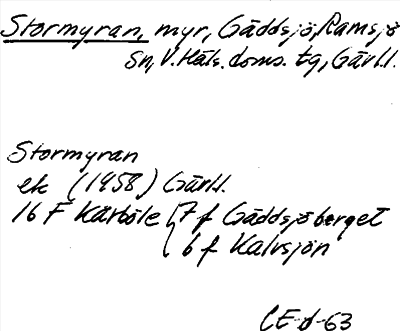 Stormyran, myr, Gäddsjö, Ramsjö
sn, V. Häls. doms. tg, Gävl.l.
Stormyran
ek (1958) Gävl.l.
16 F Kårböle 7 f Gäddsjöberget
6 f Kalvsjön
CE-d-63